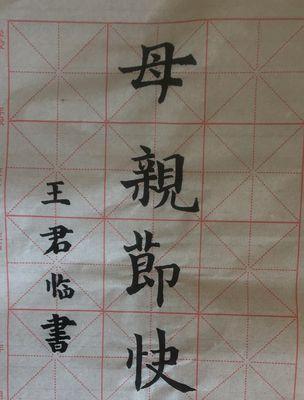 母親節快
王君临書